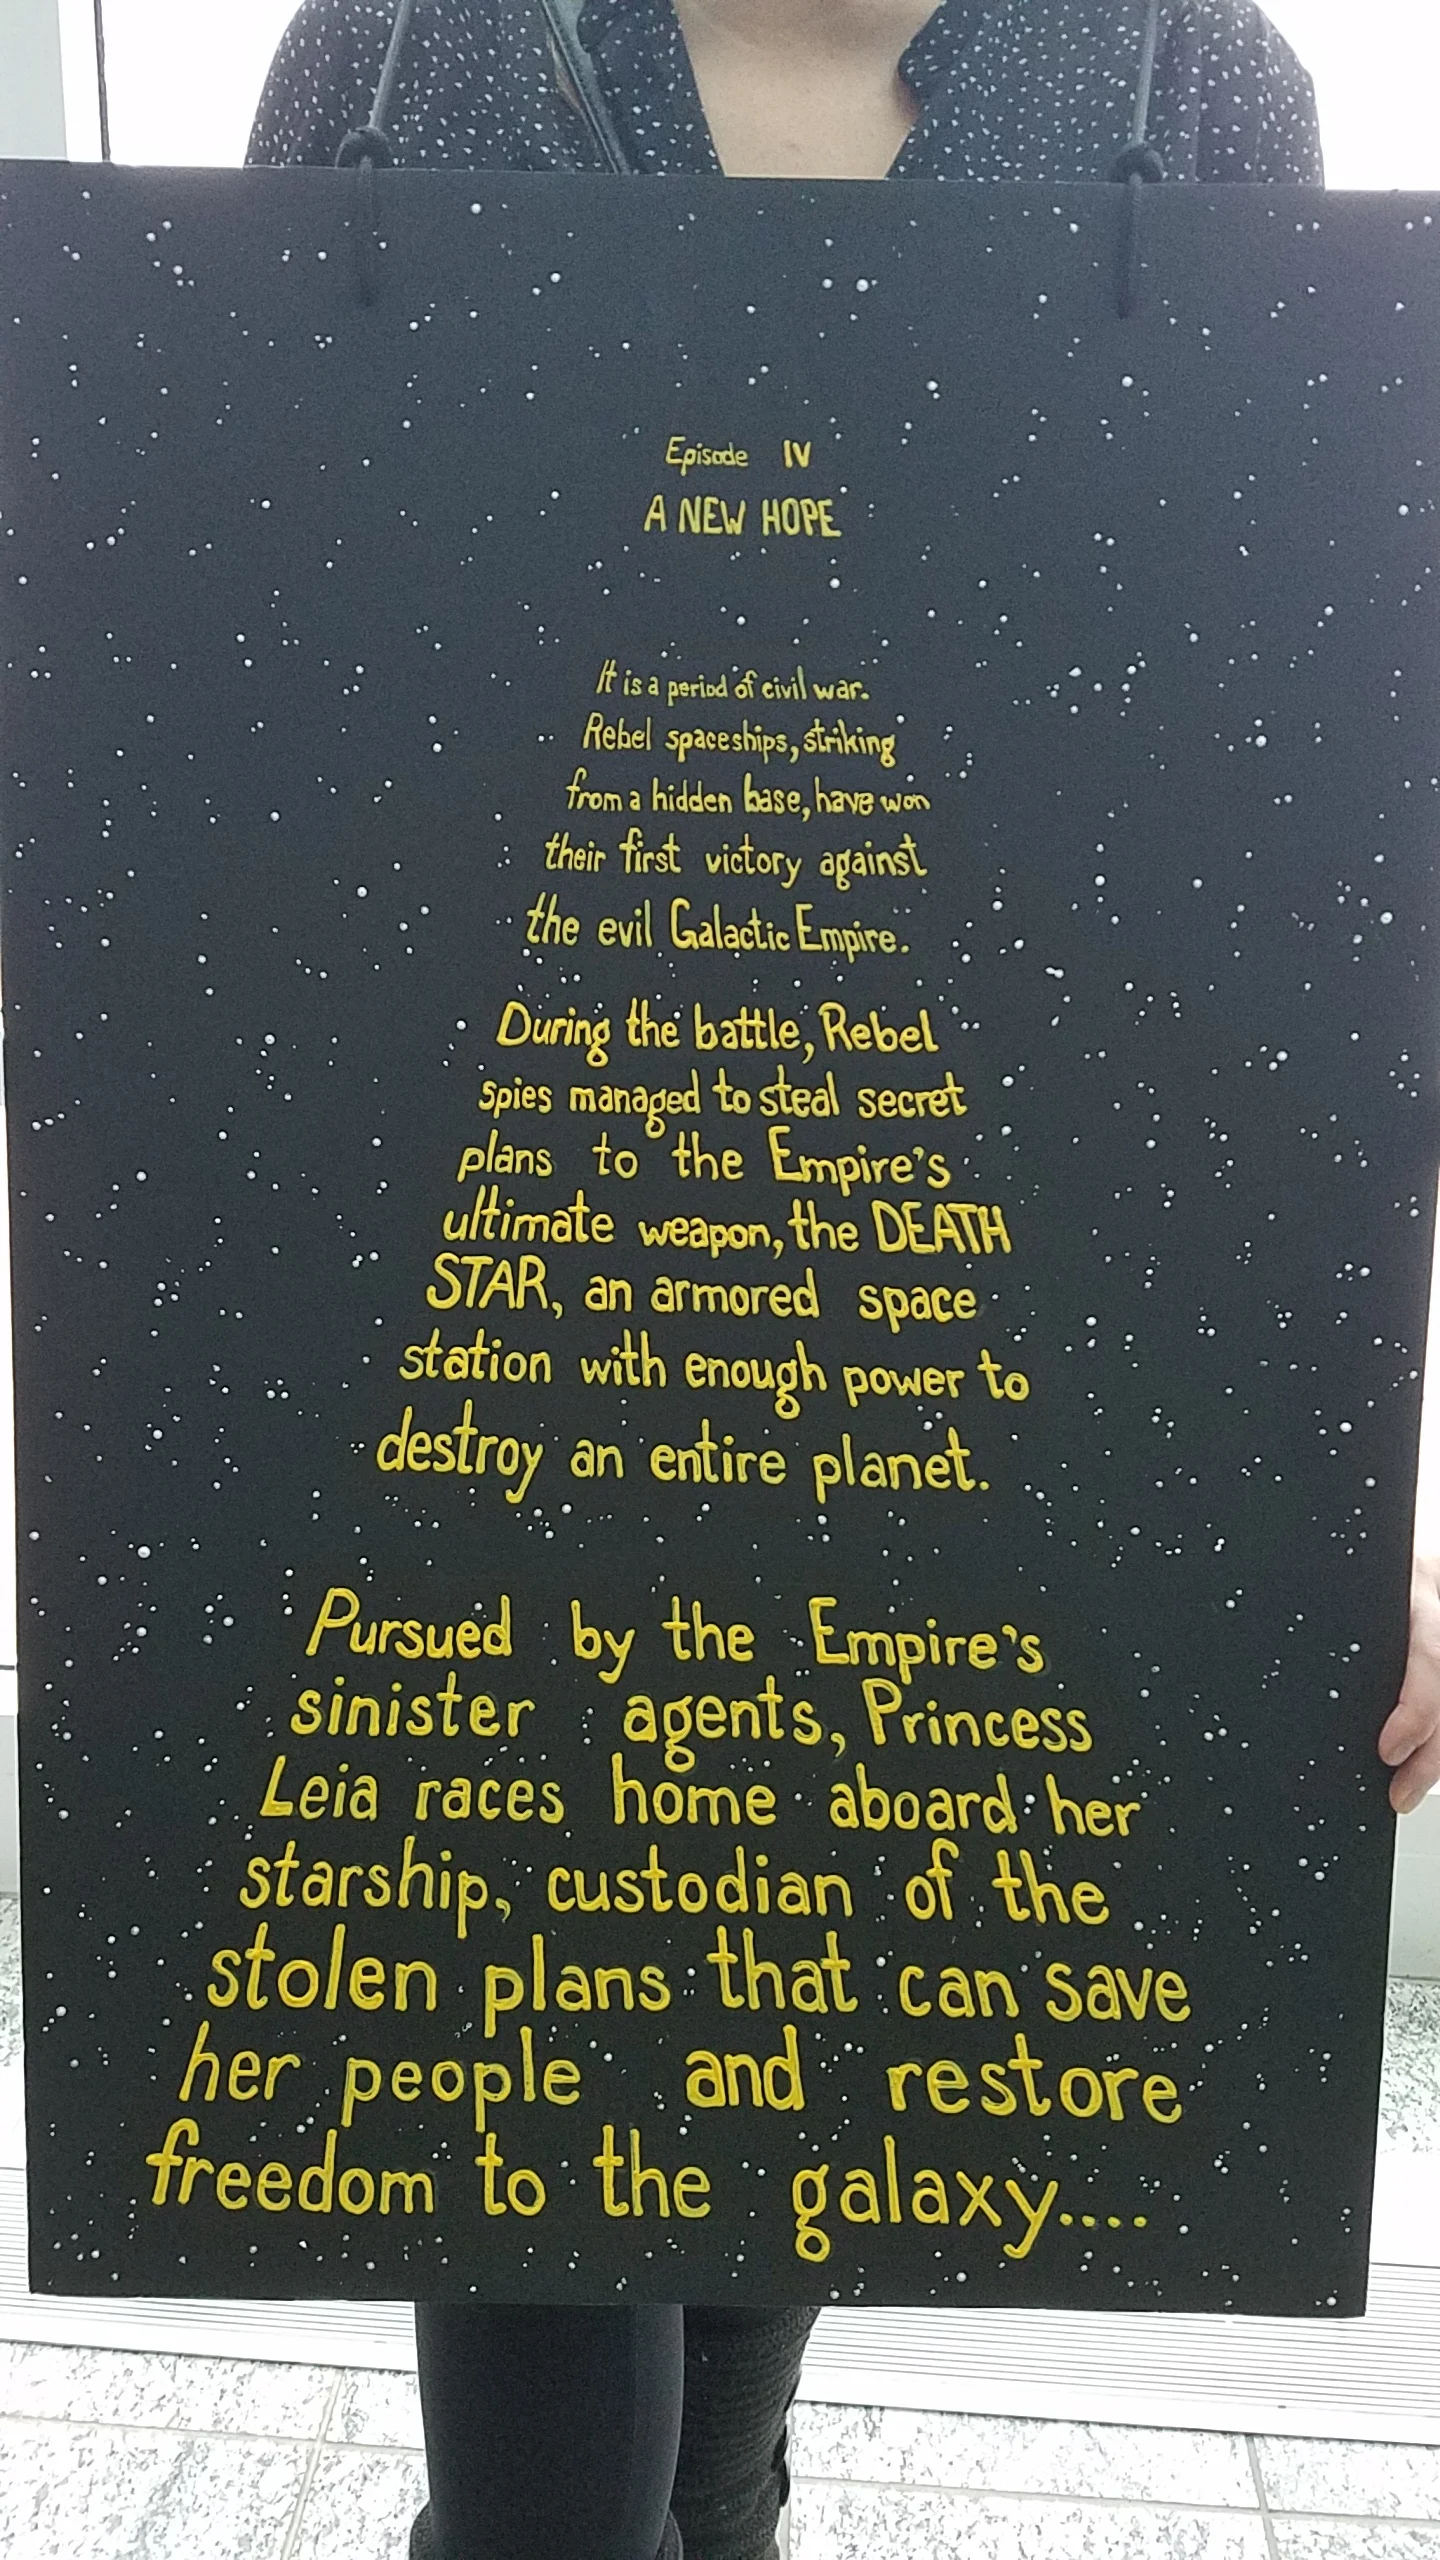 Episode IV
A NEW HOPE
It is a period of civil war.
Rebel spaceships, striking
from a hidden base, have won
their first victory against
the evil Galactic Empire.
During the battle, Rebel
spies managed to steal secret
plans to the Empire's
ultimate weapon, the DEATH
STAR, an armored space
station with enough power to
destroy an entire planet.
Pursued by the Empire's
sinister agents, Princess
Leia races home aboard her
starship, custodian of the
stolen plans that can save
her people and restore
freedom to the galaxy....